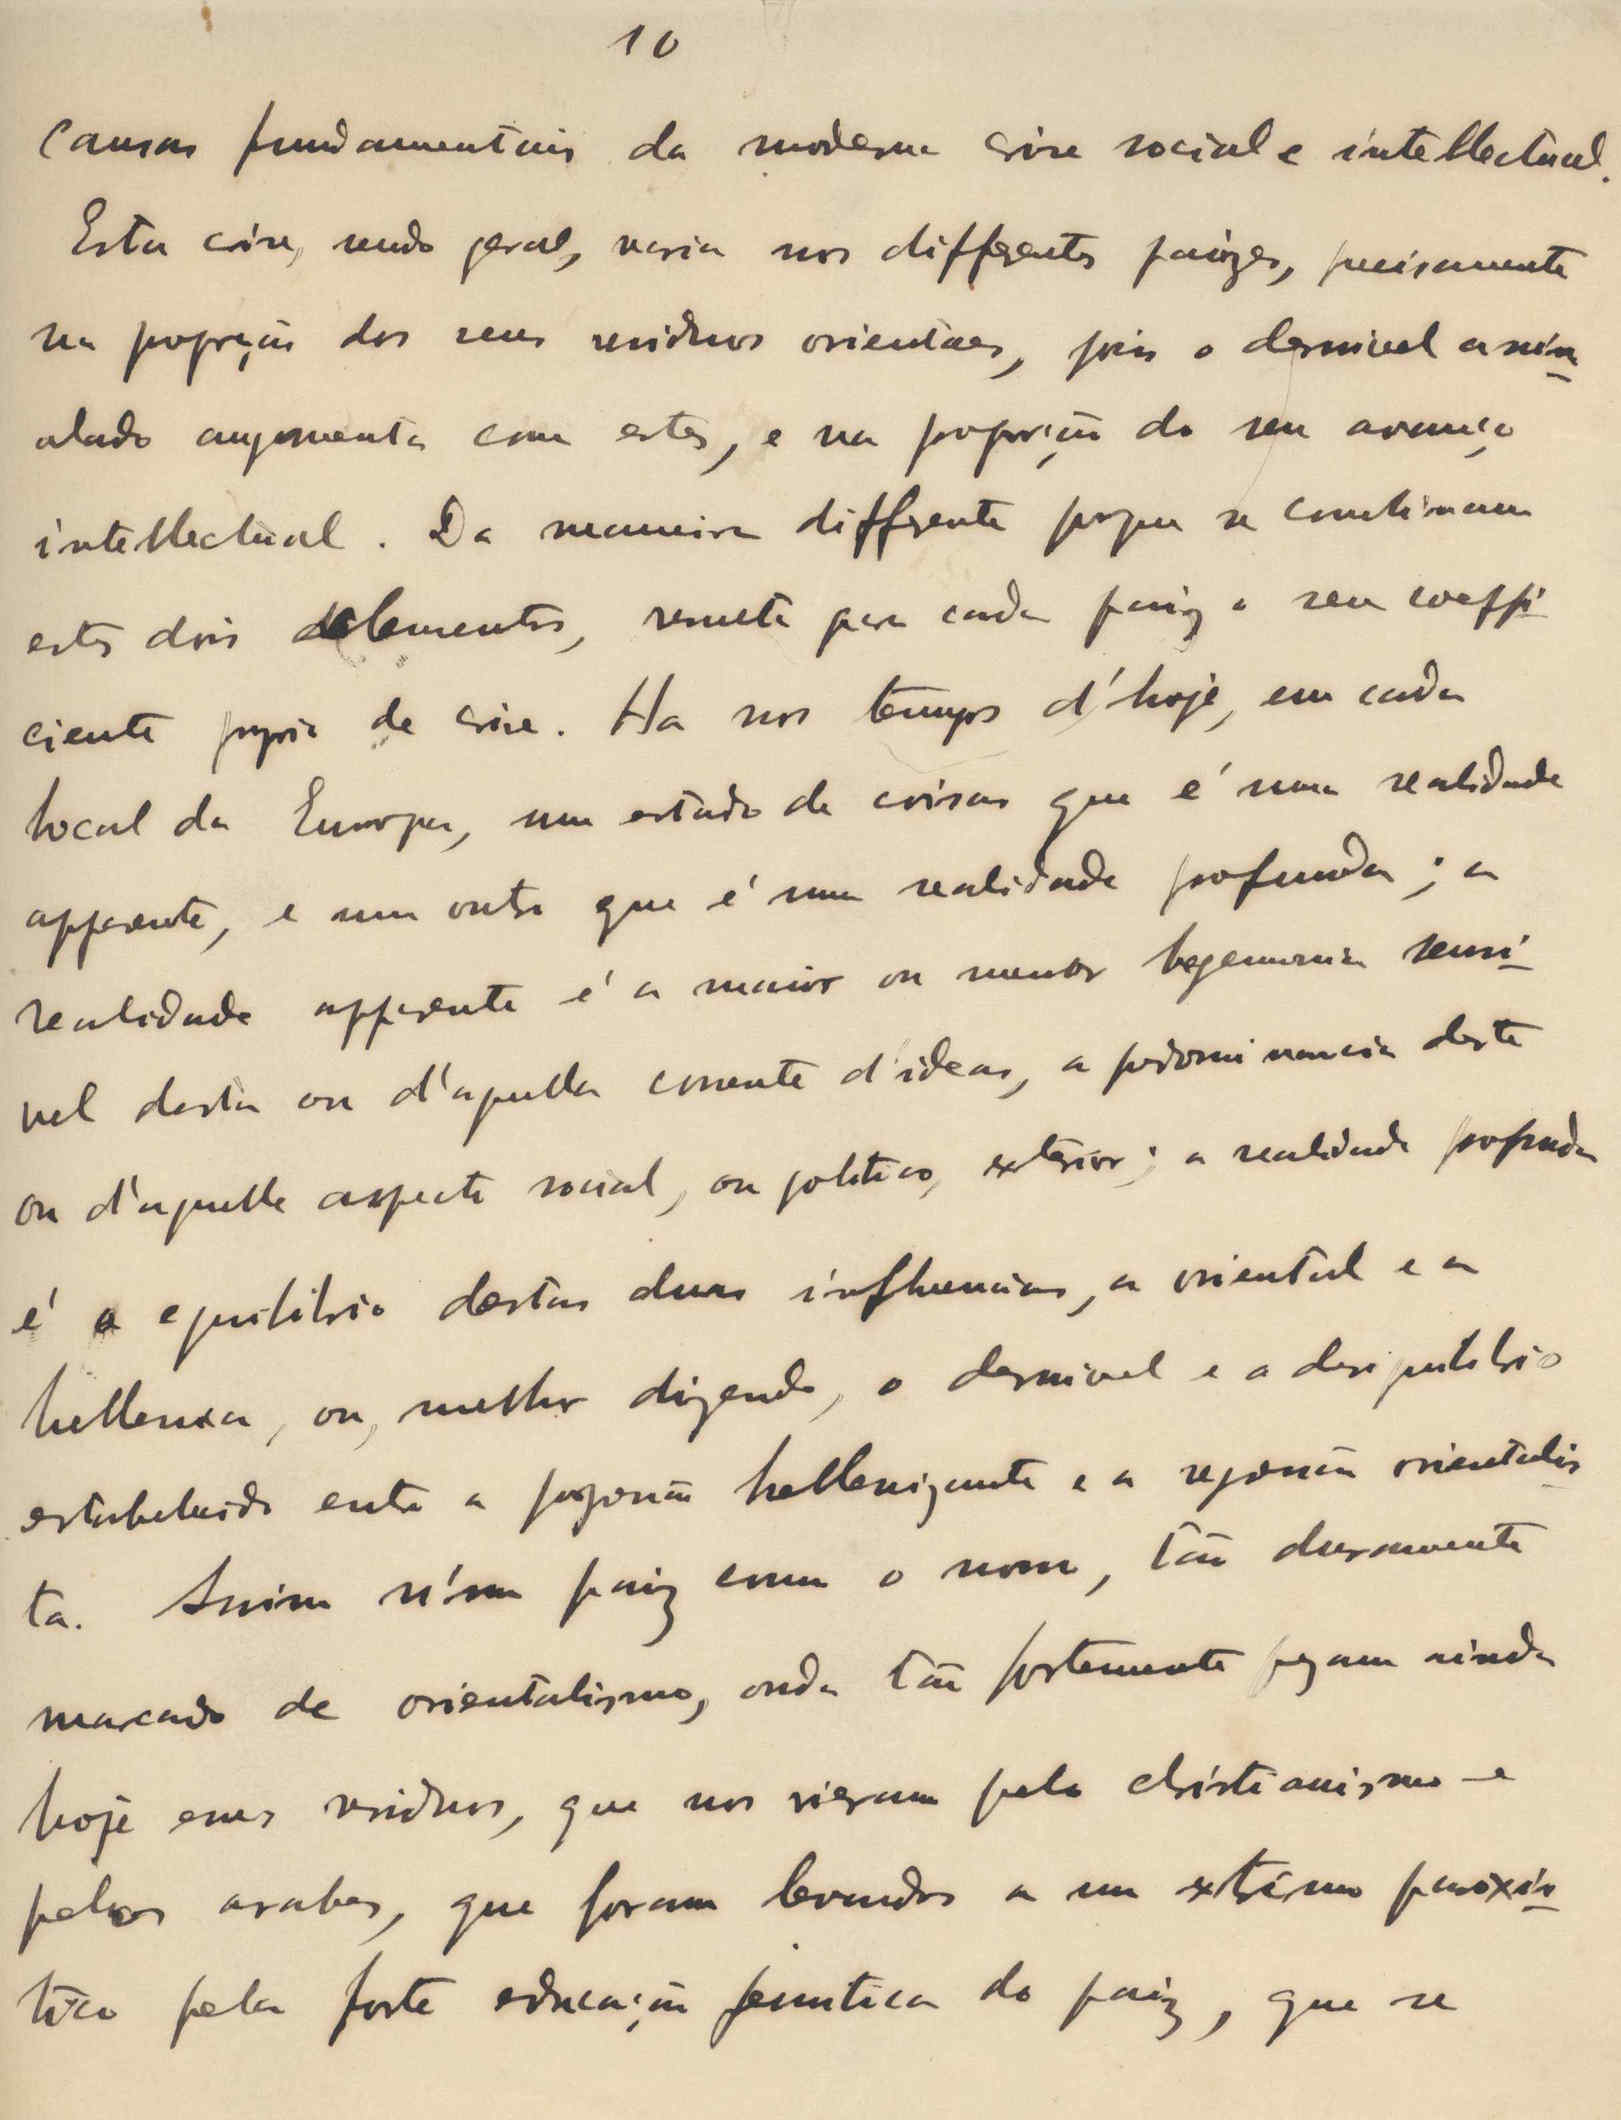 10
causas fundamentais da moderna crise social e intellectual.
Esta crise, sendo geral, varia nos differentes paizes, precisamente
na proporção dos seus residuos orientaes, pois o desnivel assin-
alado augmenta com estes, e na proporção do seu avanço
intellectual. Da maneira differente porque se combinam
estes dois elementos, resulta para cada paiz o seu coeffi-
ciente proprio de crise. Ha nos tempos d'hoje, em cada
local da Europa, um estado de coisas que é uma realidade
apparente, e um outro que é uma realidade profunda; a
realidade apparente é a maior ou menor hegemonia sensi-
vel desta ou d'aquella corrente d'ideas, a predominancia deste
ou d'aquelle aspecto social, ou politico, exterior; a realidade profunda
é o equilibrio destas duas influencias, a oriental e a
hellenica, ou, melhor dizendo, o desnivel e o desiquilibrio
estabelecido entre a progressão hellenizante e a regressão orientalis-
ta. Assim n'um paiz como o nosso, tão duramente
marcado de orientalismo, onde tão fortemente pegam ainda
hoje esses residuos, que nos vieram pelo christianismo e
pelos arabes, que foram levados a um extremo paroxis-
tico pela forte educação jesuitica do paiz, que se